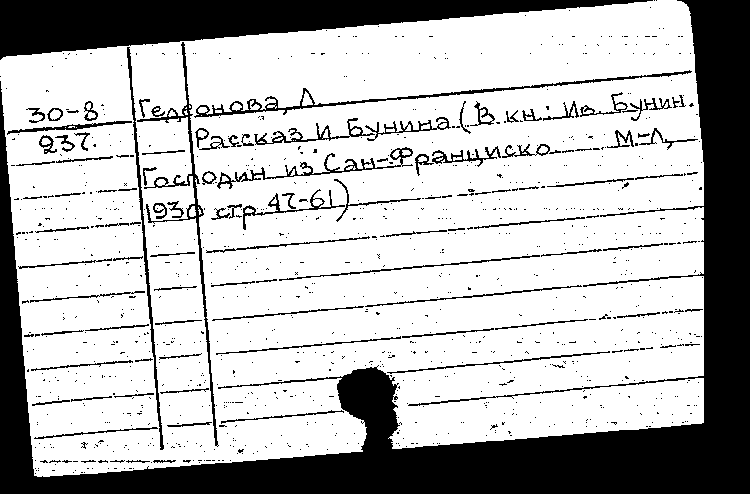 30-8 Гедеонова, Л.
237. Рассказ И Бунина (В кн.: Ив. Бунин.
Господин из Сан-Франциско М-Л,
1930 стр. 47-61)